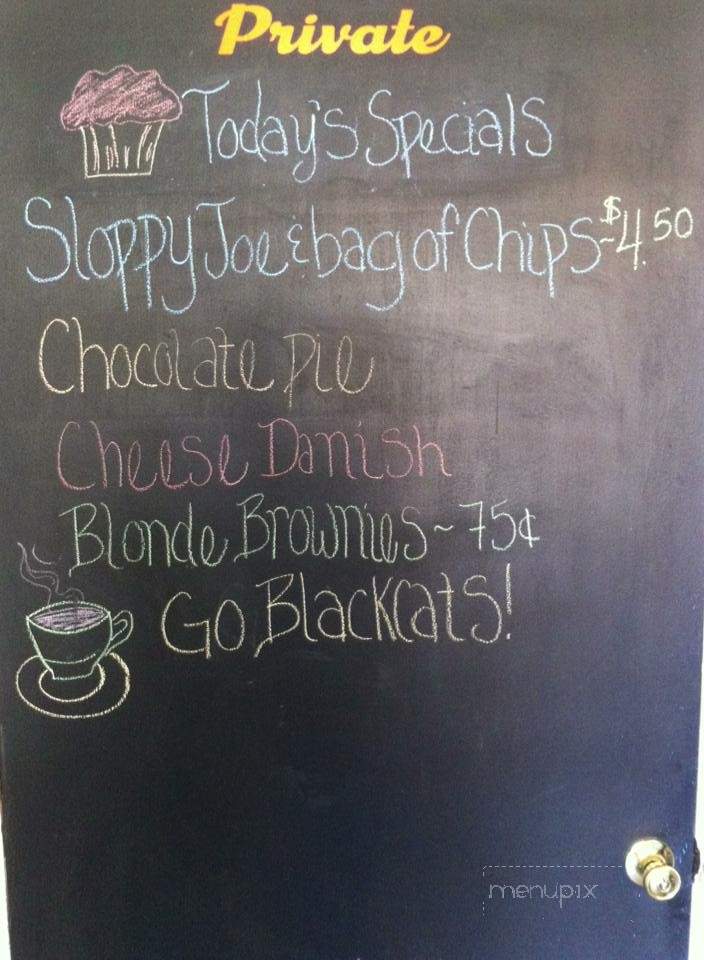 Private
Today's Specials
Sloppy Joe & bag of Chips ~ $4.50
Chocolate pie
Cheese Danish
Blonde Brownies ~ 75¢
Go Blackcats!
menupix